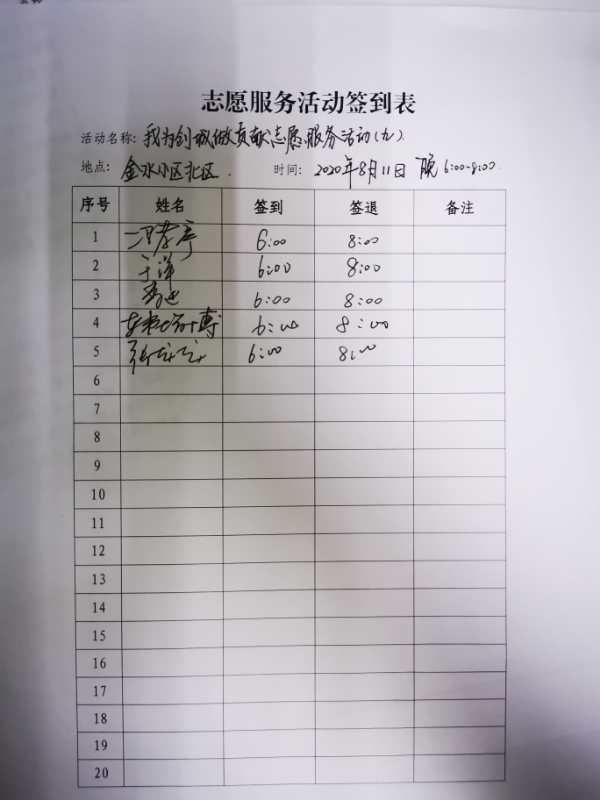 志愿服务活动签到表
活动名称: 我为创城做贡献志愿服务活动(九)
地点: 金水小区北区. 时间: 2020年8月11日 晚6:00-8:00.
序号 姓名 签到 签退 备注
1 6:00 8:00
2 于洋 6:00 8:00
3 6:00 8:00
4 6:00 8:00
5 6:00 8:00
6
7
8
9
10
11
12
13
14
15
16
17
18
19
20